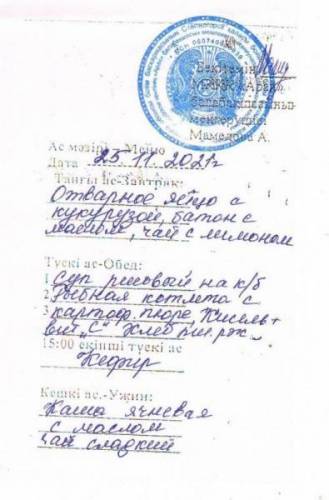 Бекітемін
МКҚК «Арай»
балабақшасының
меңгерушісі
Мамедова А.
Ас мәзірі - Меню
Дата 25.11.2021г
Таңғы ас-Завтрак:
Отварное яйцо с
кукурузой, батон с
маслом, чай с лимоном
Түскі ас-Обед:
1 Суп рисовый на к/б
2 Рыбная котлета с
3 картоф. пюре, Кисель+
вит "С" Хлеб пш. рж.
15:00 екінші түскі ас
Кефир
Кешкі ас.-Ужин:
Каша ячневая
с маслом
чай сладкий